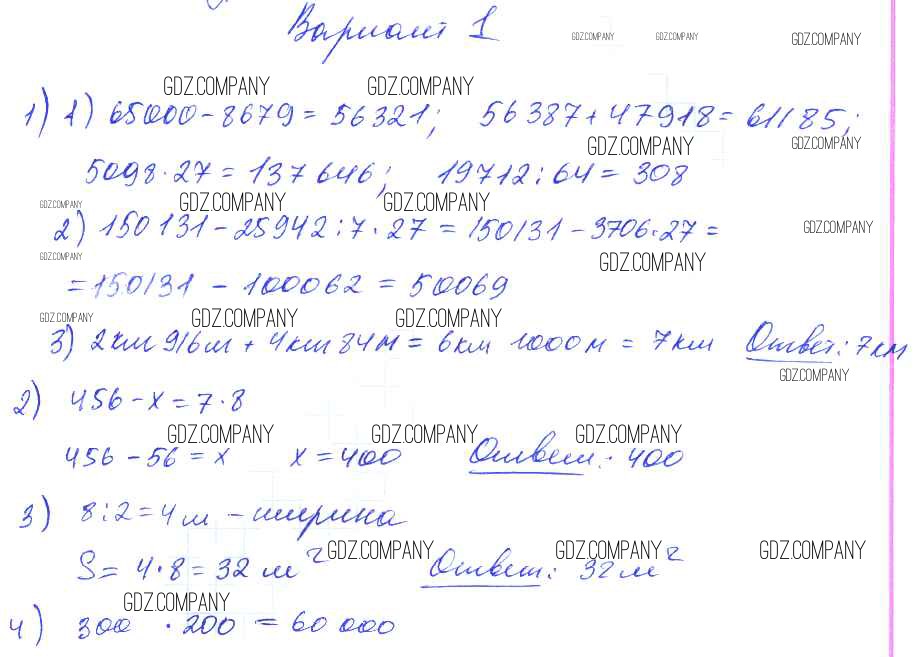 Вариант 1
GDZ.COMPANY GDZ.COMPANY GDZ.COMPANY
GDZ.COMPANY GDZ.COMPANY
1) 1) 65000 - 8679 = 56321; 56387 + 47918 = 61185;
GDZ.COMPANY GDZ.COMPANY
5098 · 27 = 137646; 19712 : 64 = 308
GDZ.COMPANY GDZ.COMPANY GDZ.COMPANY
2) 150131 - 25942 : 7 · 27 = 150131 - 3706 · 27 =
GDZ.COMPANY
GDZ.COMPANY GDZ.COMPANY
= 150131 - 100062 = 50069
GDZ.COMPANY GDZ.COMPANY GDZ.COMPANY
3) 2км 916м + 4км 84м = 6км 1000м = 7км Ответ: 7км
GDZ.COMPANY
2) 456 - х = 7 · 8
GDZ.COMPANY GDZ.COMPANY GDZ.COMPANY
456 - 56 = х х = 400 Ответ: 400
3) 8 : 2 = 4м - ширина
GDZ.COMPANY GDZ.COMPANY GDZ.COMPANY
S = 4 · 8 = 32 м² Ответ: 32 м²
GDZ.COMPANY
4) 300 · 200 = 60 000